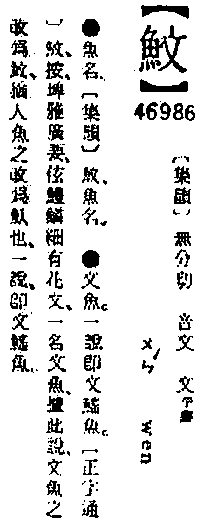 【魰】
46986
〔集韻〕無分切 音文 文平聲
ㄨㄣˊ wen
●魚名。〔集韻〕魰、魚名。●文魚。一說即文鰩魚。〔正字通
〕魰、按、埤雅廣要、伭鱧鱗細有花文、一名文魚、據此說、文魚之
改爲魰、猶人魚之改爲魜也、一說、即文鰩魚。